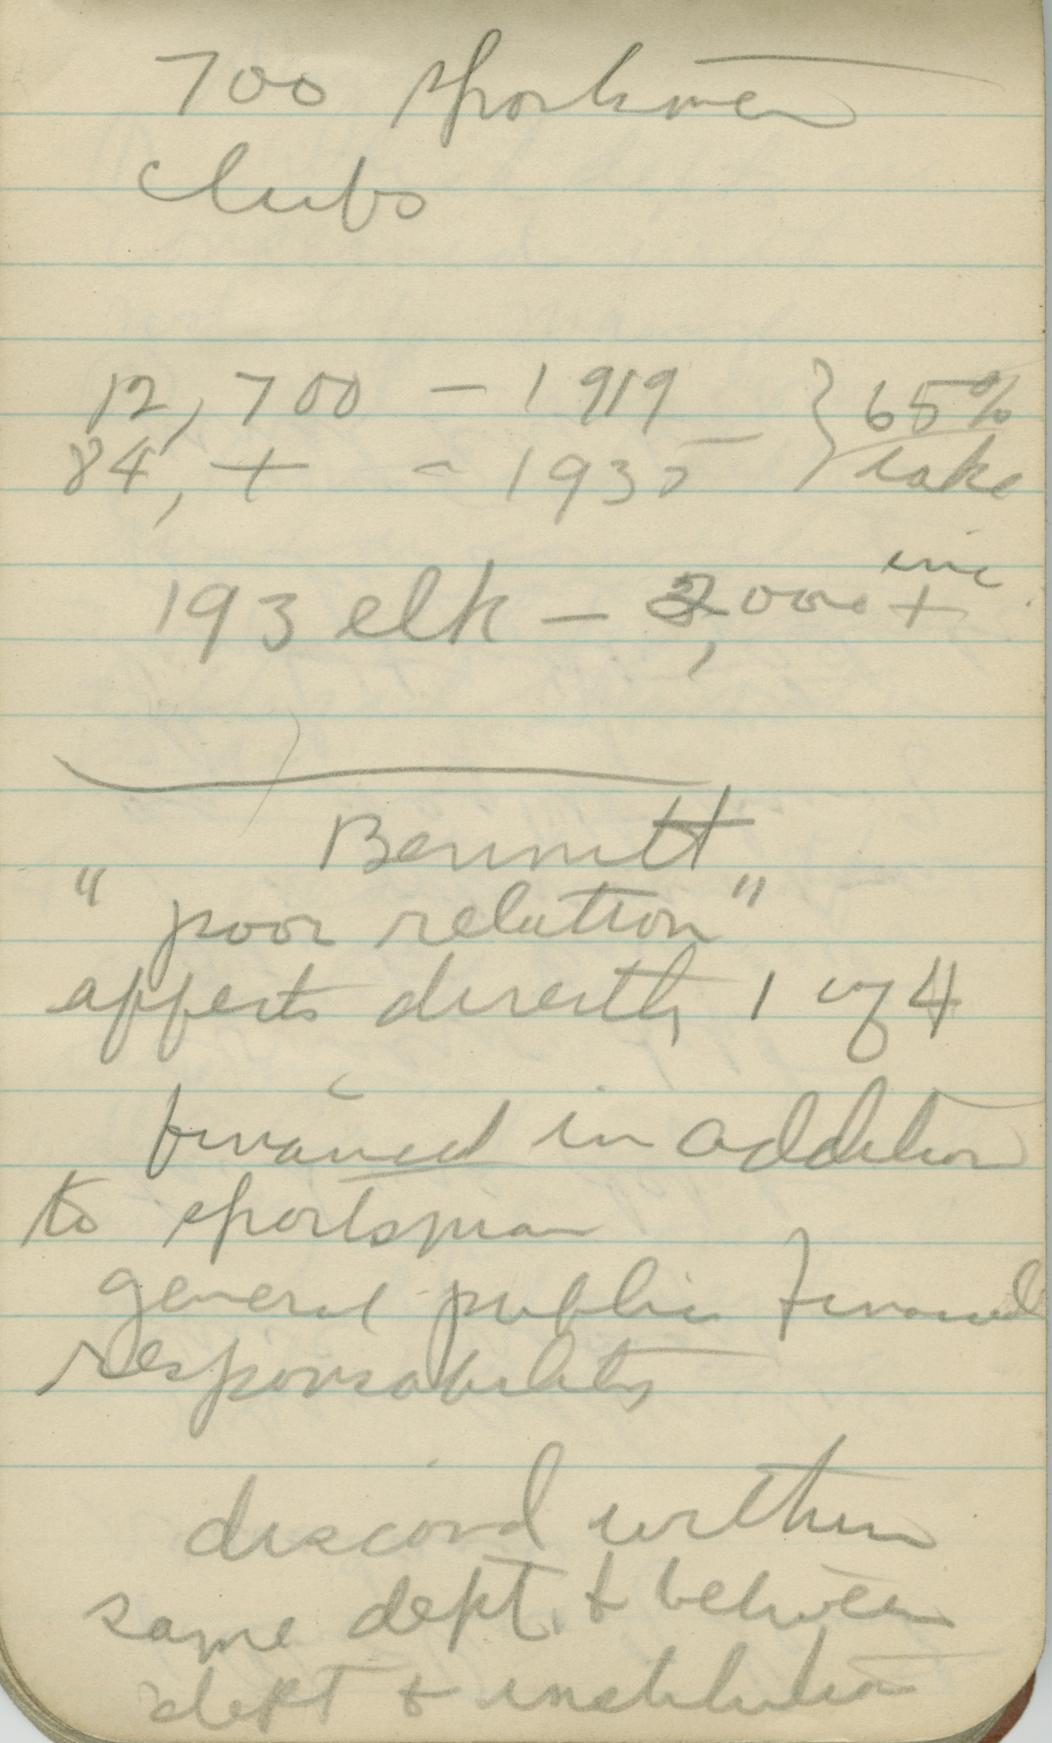 700 sportsmen
clubs
12,700 — 1919 } 65%
84,+ - 1935 } take
inc
193 elk — 2,000 +
Bennett
"poor relation"
affects directly 1 of 4
financed in addition
to sportsman
general public financial
responsability
discord within
same dept. & between
dept & institution